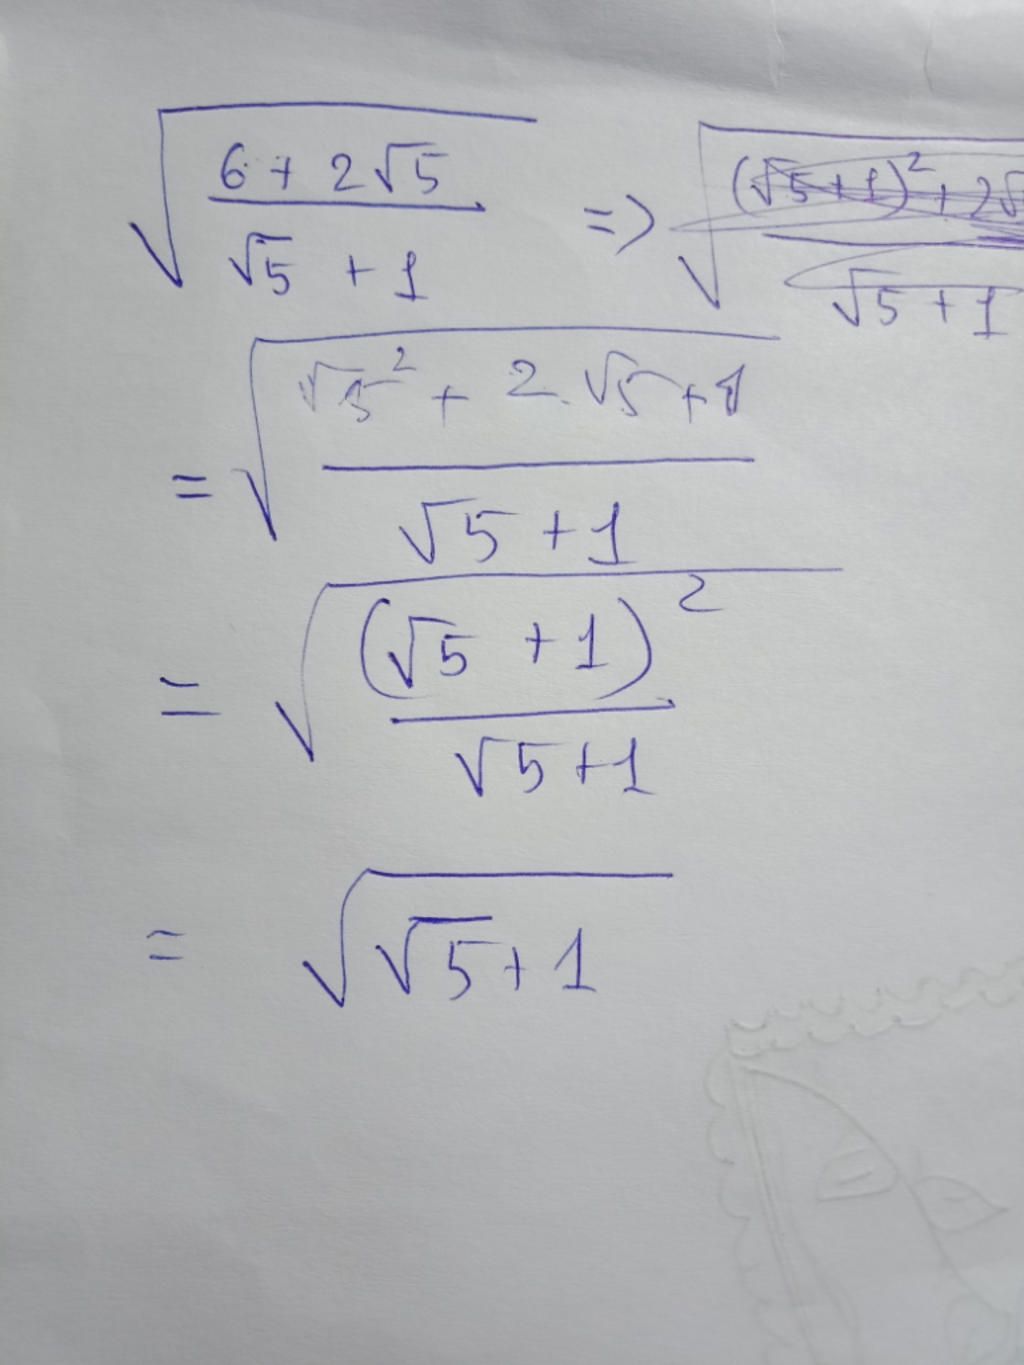 √((6 + 2√5)/(√5 + 1)) => √(((√5+1)² + 2√)/(√5 + 1))
= √((√5² + 2.√5 + 1)/(√5 + 1))
= √((√5 + 1)²/(√5 + 1))
= √(√5 + 1)